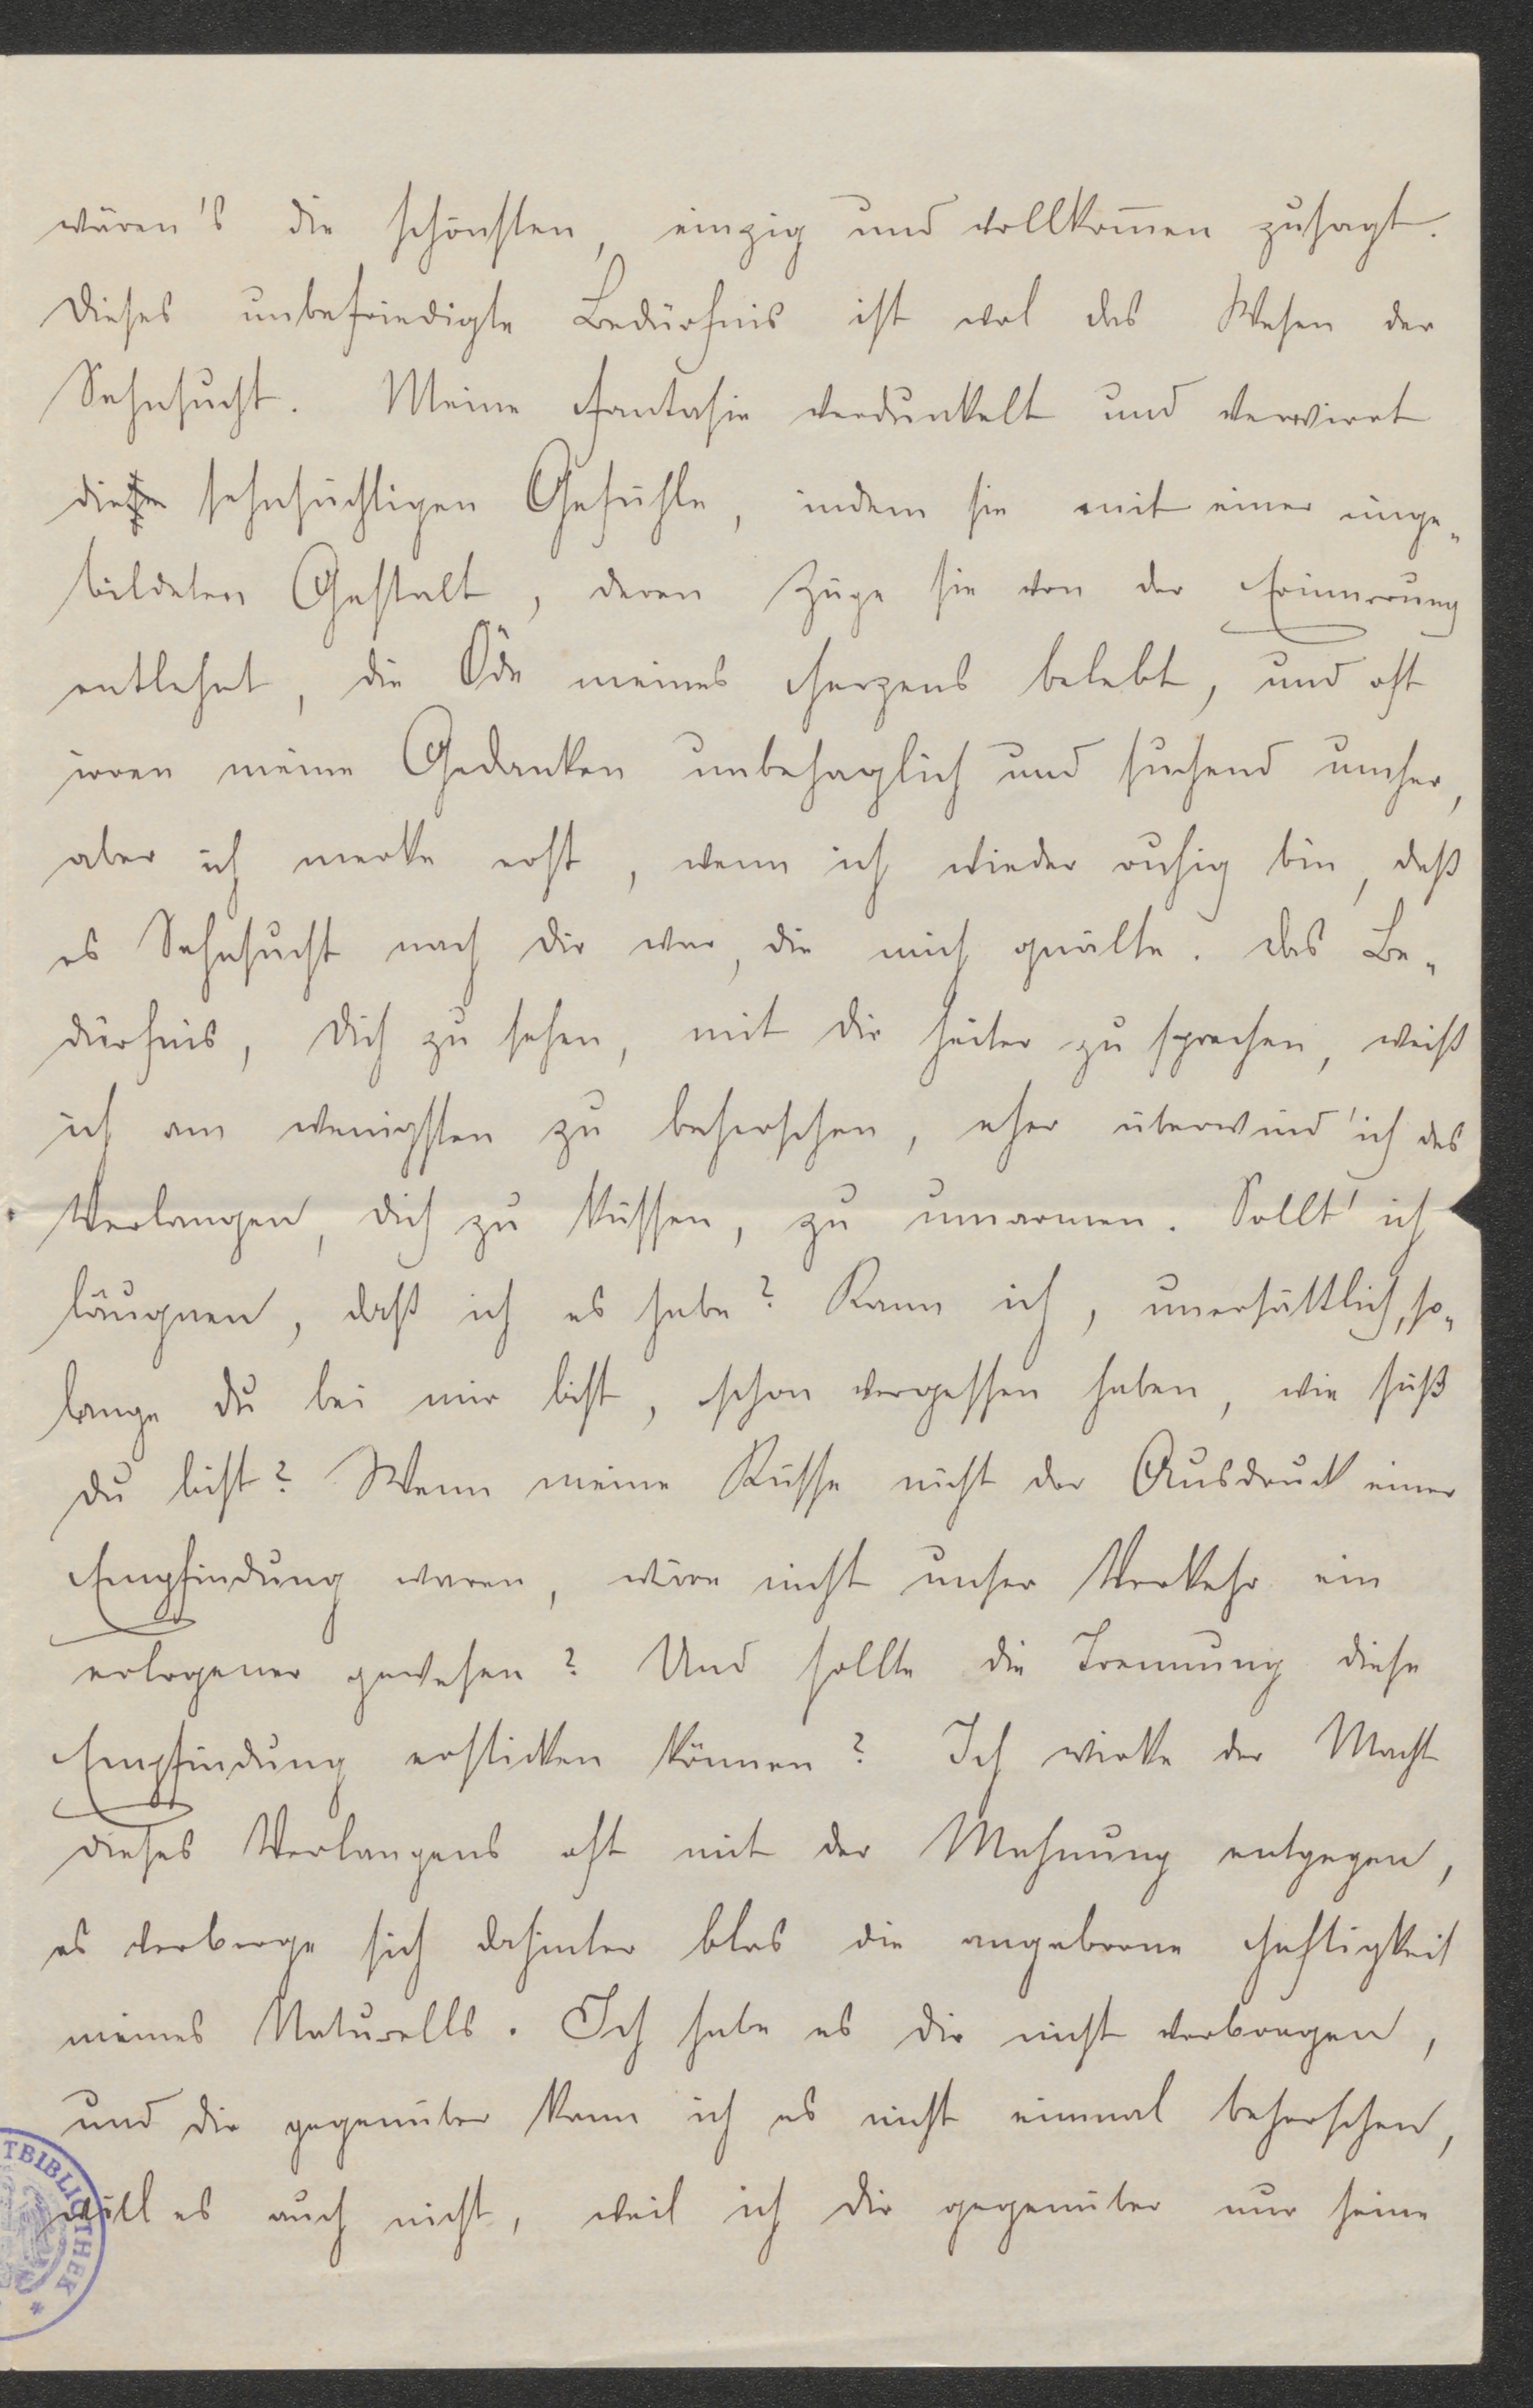 wären's die schönsten, einzig und vollkom̅en zusagt.
Dieses unbefriedigte Bedürfnis ist wol das Wesen der
Sehnsucht. Meine Fantasie verdunkelt und verwirrt
diese sehnsüchtigen Gefühle, indem sie mit einer einge„
bildeten Gestalt, deren Züge sie von der Erinnerung
entlehnt, die Öde meines Herzens belebt, und oft
irren meine Gedanken unbehaglich und suchend umher,
aber ich merke erst, wenn ich wieder ruhig bin, daß
es Sehnsucht nach dir war, die mich quälte. Das Be„
dürfnis, dich zu sehen, mit dir heiter zu sprechen, weiß
ich am wenigsten zu beherschen, eher überwind' ich das
Verlangen, dich zu küssen, zu umarmen. Sollt' ich
läugnen, daß ich es habe? Kann ich, unersättlich, so„
lange du bei mir bist, schon vergessen haben, wie süß
du bist? Wenn meine Küsse nicht der Ausdruck einer
Empfindung waren, wäre nicht unser Verkehr ein
erlogener gewesen? Und sollte die Trennung diese
Empfindung ersticken können? Ich wirke der Macht
dieses Verlangens oft mit der Mahnung entgegen,
es verberge sich dahinter blos die angeborne Heftigkeit
meines Naturells. Ich habe es dir nicht verborgen,
und dir gegenüber kann ich es nicht einmal beherschen,
will es auch nicht, weil ich dir gegenüber nur seine
TBIBLIOTHEK